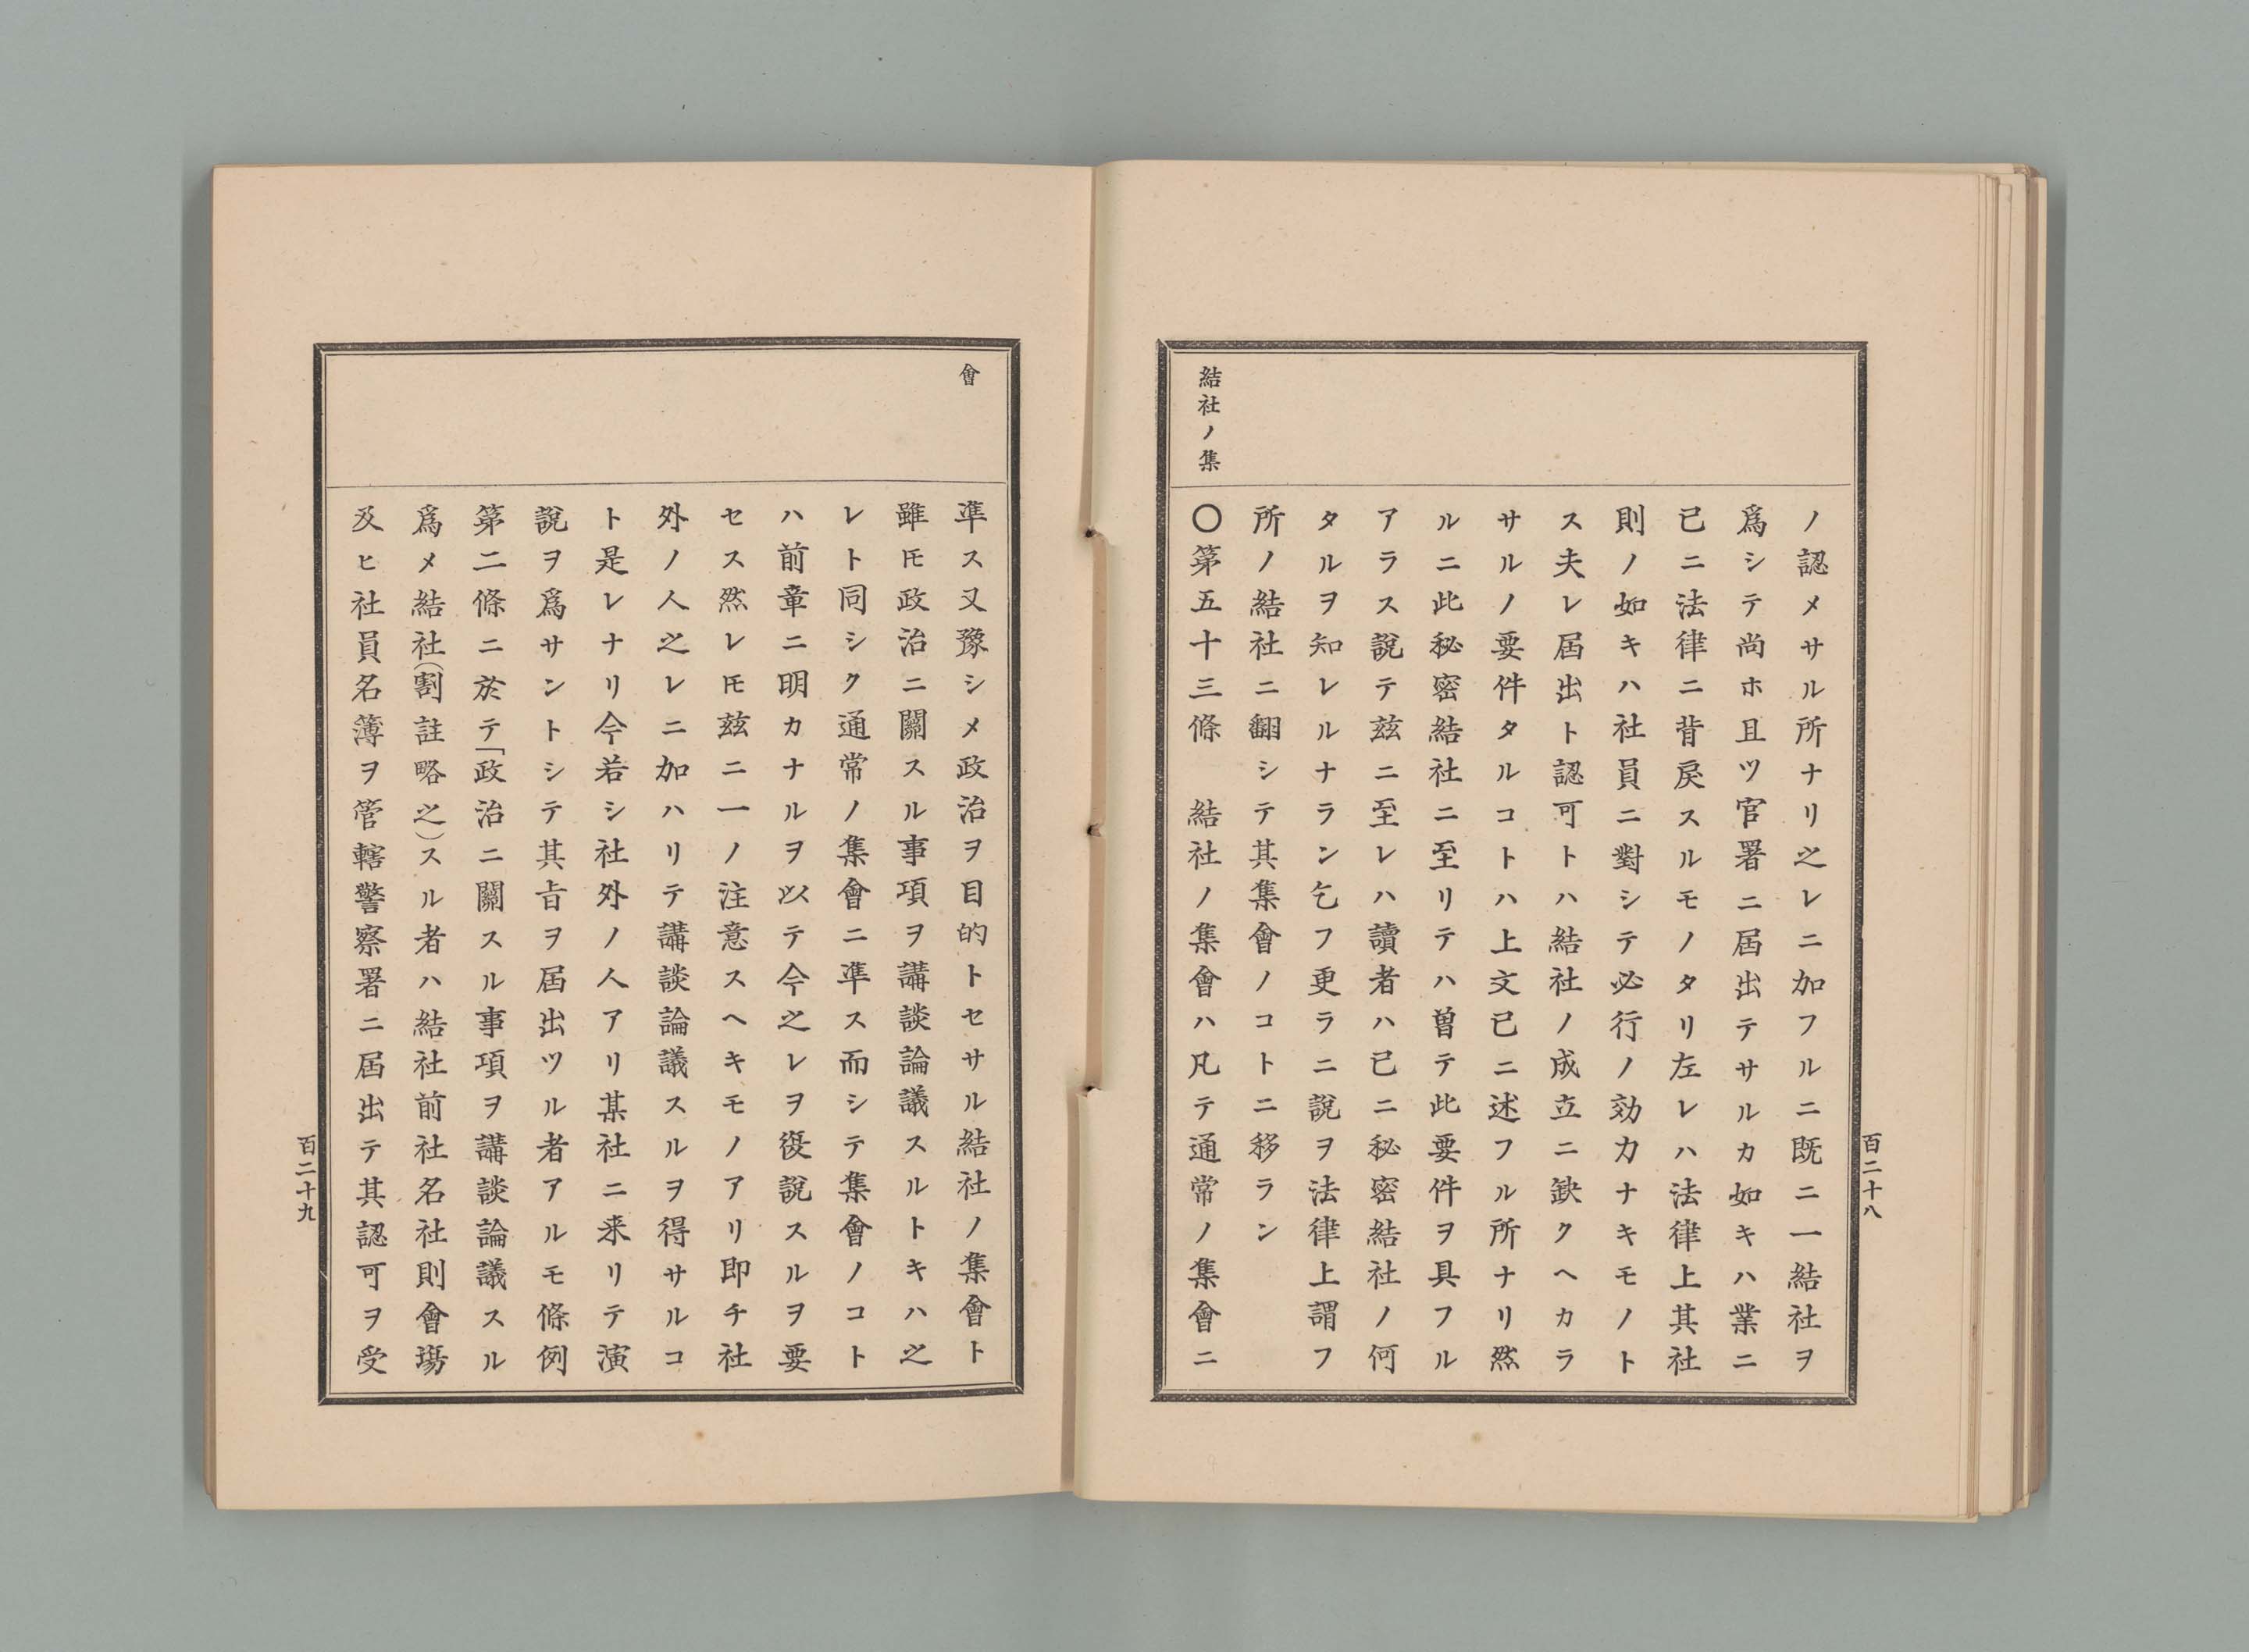 ノ認メサル所ナリ之レニ加フルニ既ニ一結社ヲ
爲シテ尚ホ且ツ官署ニ屆出テサルカ如キハ業ニ
已ニ法律ニ背戾スルモノタリ左レハ法律上其社
則ノ如キハ社員ニ對シテ必行ノ効力ナキモノト
ス夫レ屆出ト認可トハ結社ノ成立ニ缺クヘカラ
サルノ要件タルコトハ上文已ニ述フル所ナリ然
ルニ此秘密結社ニ至リテハ曽テ此要件ヲ具フル
アラス說テ茲ニ至レハ讀者ハ已ニ秘密結社ノ何
タルヲ知レルナラン乞フ更ラニ說ヲ法律上謂フ
所ノ結社ニ翻シテ其集會ノコトニ移ラン
結社ノ集
〇第五十三條　結社ノ集會ハ凡テ通常ノ集會ニ
百二十八
會
凖ス又豫シメ政治ヲ目的トセサル結社ノ集會ト
雖𪜈政治ニ關スル事項ヲ講談論議スルトキハ之
レト同シク通常ノ集會ニ凖ス而シテ集會ノコト
ハ前章ニ明カナルヲ以テ今之レヲ復說スルヲ要
セス然レ𪜈茲ニ一ノ注意スヘキモノアリ即チ社
外ノ人之レニ加ハリテ講談論議スルヲ得サルコ
ト是レナリ今若シ社外ノ人アリ某社ニ来リテ演
說ヲ爲サントシテ其旨ヲ屆出ツル者アルモ條例
第二條ニ於テ「政治ニ關スル事項ヲ講談論議スル
爲メ結社(割註略之)スル者ハ結社前社名社則會塲
及ヒ社員名薄ヲ管轄警察署ニ屆出テ其認可ヲ受
百二十九